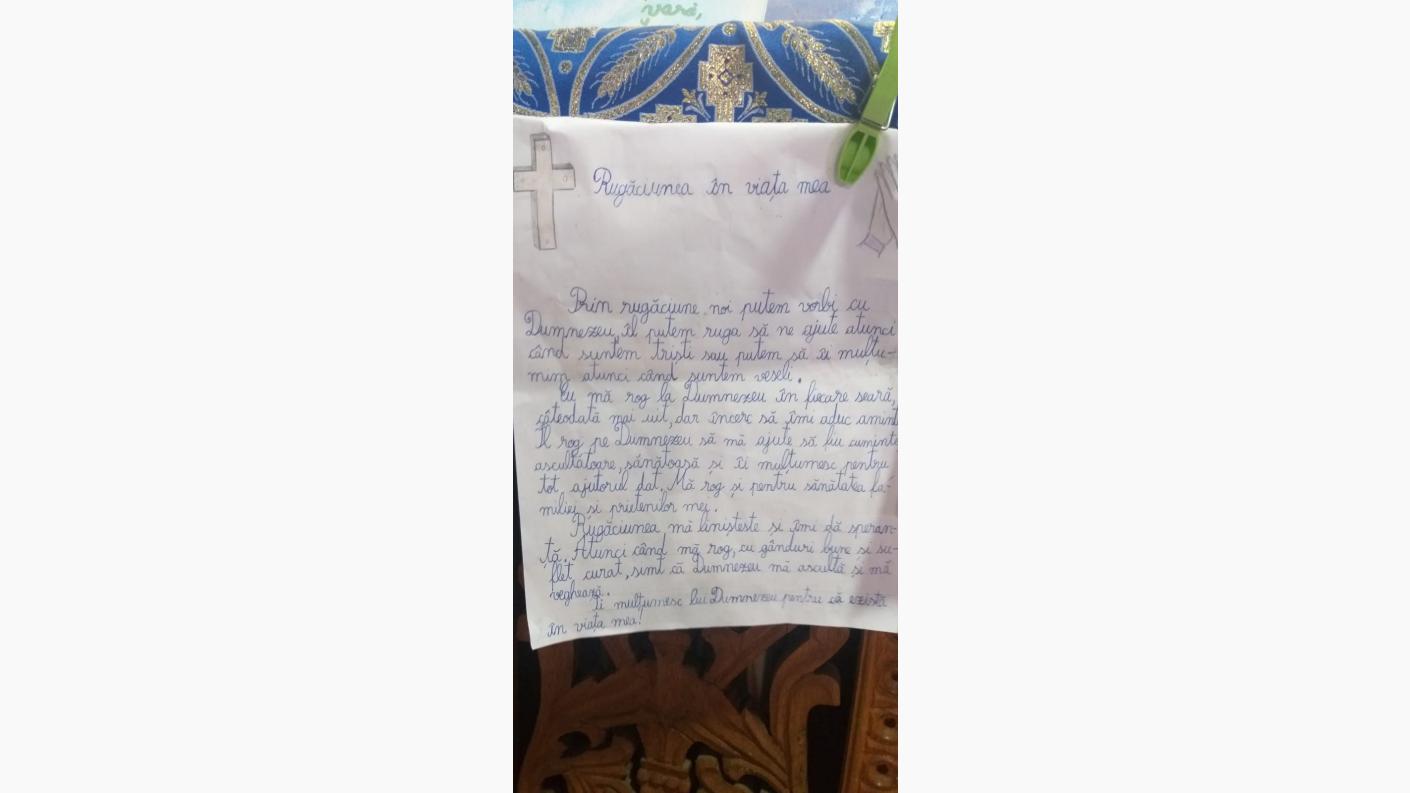 vară,
Rugăciunea în viața mea
Prin rugăciune noi putem vorbi cu
Dumnezeu, îl putem ruga să ne ajute atunci
când suntem triști sau putem să îi mulțu-
mim atunci când suntem veseli.
Eu mă rog la Dumnezeu în fiecare seară,
câteodată mai uit, dar încerc să îmi aduc amint
Îl rog pe Dumnezeu să mă ajute să fiu cuminte
ascultătoare, sănătoasă și îi mulțumesc pentru
tot ajutorul dat. Mă rog și pentru sănătatea fa-
miliei și prietenilor mei.
Rugăciunea mă liniștește și îmi dă speran-
ță. Atunci când mă rog, cu gânduri bune și su-
flet curat, simt că Dumnezeu mă ascultă și mă
veghează.
Îi mulțumesc lui Dumnezeu pentru că există
în viața mea!